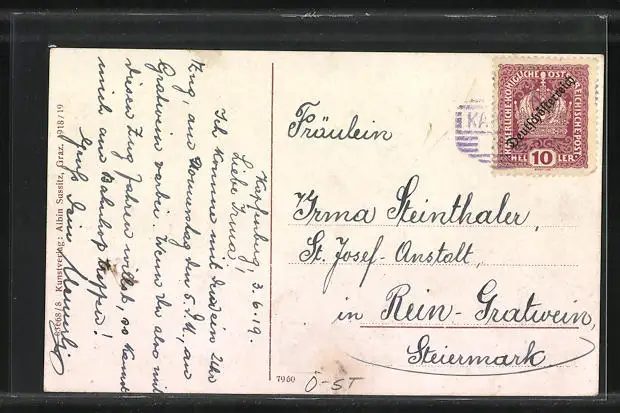 Kapfenburg, 3.6.19.
Liebe Irma!
Ich komme mit dem ein Uhr
Zug, am Donnerstag den 5. d. M., an
Gratwein vorbei. Wenn du also mit
diesen Zug fahren willst, so kannst
mich am Bahnhof treffen!
Gruß Dein
45668/8 Kunstverlag: Albin Sussitz, Graz. 1918/19
Fräulein
Irma Steinthaler,
St. Josef-Anstalt,
in Rein-Gratwein,
Steiermark
7960
Ö-ST
KAISERLICHE KÖNIGLICHE ÖSTERREICHISCHE POST
Deutschösterreich
HELLER 10
KA